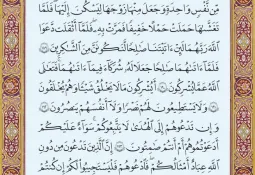 مِّن نَّفْسٍ وَٰحِدَةٍ وَجَعَلَ مِنْهَا زَوْجَهَا لِيَسْكُنَ إِلَيْهَا فَلَمَّا
تَغَشَّىٰهَا حَمَلَتْ حَمْلًا خَفِيفًا فَمَرَّتْ بِهِۦ فَلَمَّآ أَثْقَلَت دَّعَوَا
ٱللَّهَ رَبَّهُمَا لَئِنْ ءَاتَيْتَنَا صَٰلِحًا لَّنَكُونَنَّ مِنَ ٱلشَّٰكِرِينَ
فَلَمَّآ ءَاتَىٰهُمَا صَٰلِحًا جَعَلَا لَهُۥ شُرَكَآءَ فِيمَآ ءَاتَىٰهُمَا فَتَعَٰلَى
ٱللَّهُ عَمَّا يُشْرِكُونَ أَيُشْرِكُونَ مَا لَا يَخْلُقُ شَيْـًٔا وَهُمْ يُخْلَقُونَ
وَلَا يَسْتَطِيعُونَ لَهُمْ نَصْرًا وَلَآ أَنفُسَهُمْ يَنصُرُونَ
وَإِن تَدْعُوهُمْ إِلَى ٱلْهُدَىٰ لَا يَتَّبِعُوكُمْ سَوَآءٌ عَلَيْكُمْ
أَدَعَوْتُمُوهُمْ أَمْ أَنتُمْ صَٰمِتُونَ إِنَّ ٱلَّذِينَ تَدْعُونَ مِن دُونِ
ٱللَّهِ عِبَادٌ أَمْثَالُكُمْ فَٱدْعُوهُمْ فَلْيَسْتَجِيبُوا۟ لَكُمْ إِن كُنتُمْ